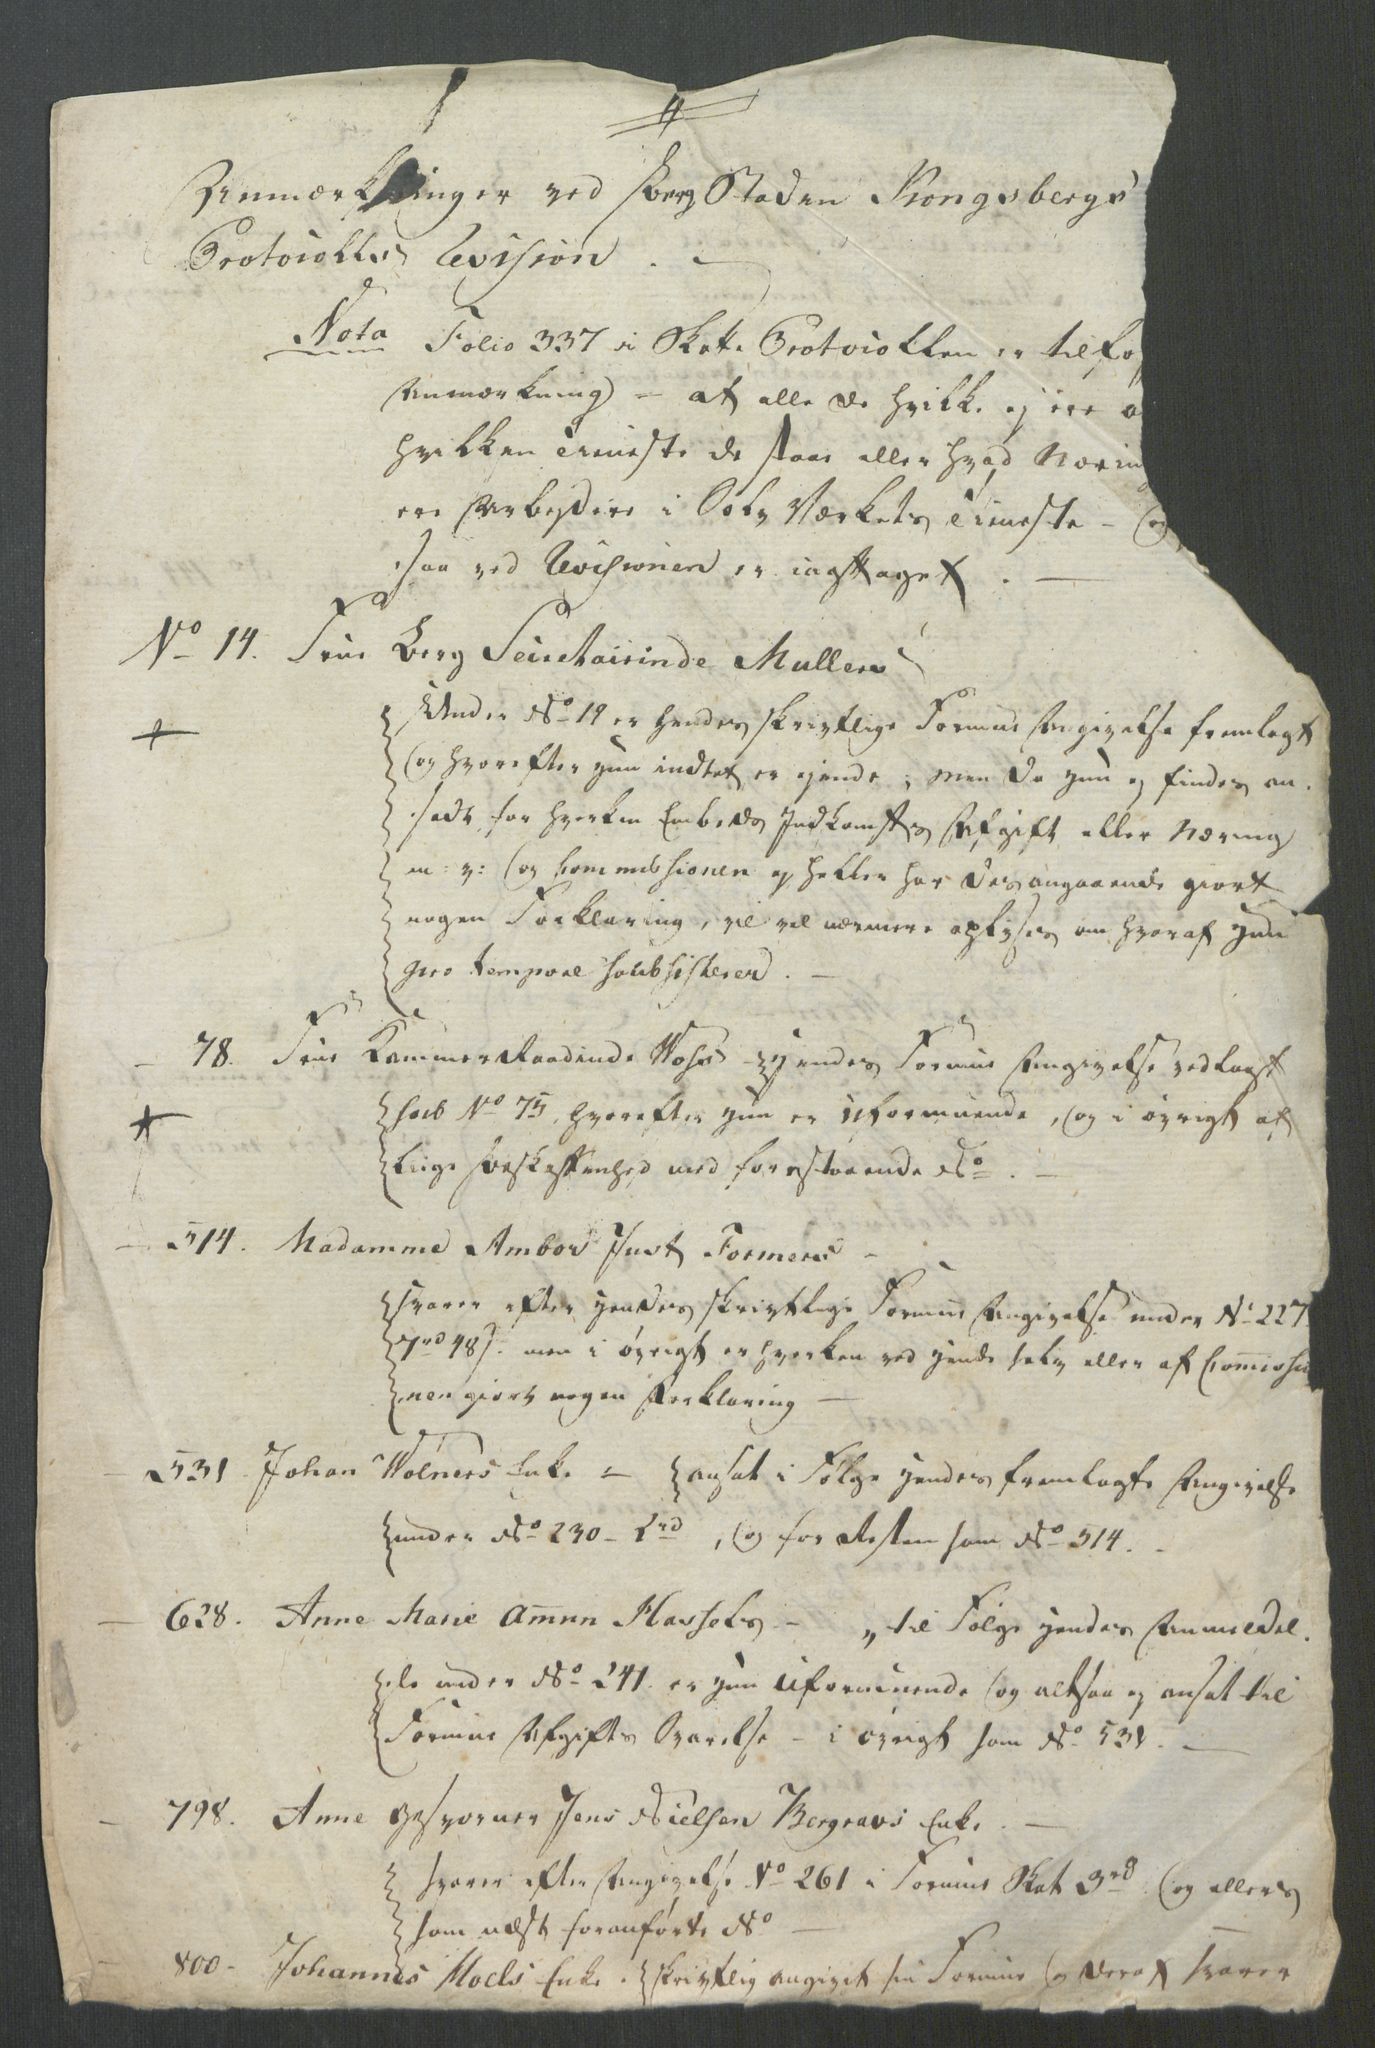 Anmærkninger ved Berg Staden Kongsbergs
Protocolls Revision.
Nota Folio 337 i Skatte Protocollen er tilfø
Anmærkning – at alle de hvilke ej ere a
hvilken Tieneste de staae eller hvad Nærin
ere Arbeydere i Sølv Værkets Tieneste – og
saa ved Revisionen er iagttaget. –
No 14. Frue Berg Secretairinde Mullers
Under No 19 er hendes skrivtlige Formue Angivelse fremlagt
og hvorefter hun indtet er ejende, men da hun ej findes an-
sadt for hverken Embeds Indkomsts Afgift eller Næring
m: v: og Commissionen ej heller har desangaaende giort
nogen Forklaring, vil vel nærmere oplyses om hvoraf hun
pro tempore soubsisterer. –
– 78. Frue Kammer Raadinde Wohs – Hendes Formue Angivelse vedlagt
sub No 75, hvorefter hun er uformuende, og i øvrigt af
liige Beskaffenhed med forestaaende No. –
– 514. Madamme Ambor Just Formers –
svarer efter hendes skrivtlige Formue Angivelse under No 227
7rd 48s. men i øvrigt er hverken ved hende selv eller af Commissio
nen giort nogen Forklaring –
– 531. Johan Wølners Enke – ansat i Følge hendes fremlagte Angivelse
under No 230 – 1rd, og for Resten som No 514. –
– 628. Anne Marie Amun Hassels – til Følge hendes Anmeldel-
se under No 241. er hun uformuende og altsaa ej ansat til
Formue Afgifts Svarelse – i øvrigt som No 531. –
– 798. Anne Gesvorner Jens Nielsen Bergraus Enke. –
svarer efter Angivelse No 261 i Formue Skat 3rd og ellers
som næst foranførte No –
– 800 – Johannes Moels Enke. skrivtlig angivet sin Formue og deraf svarer